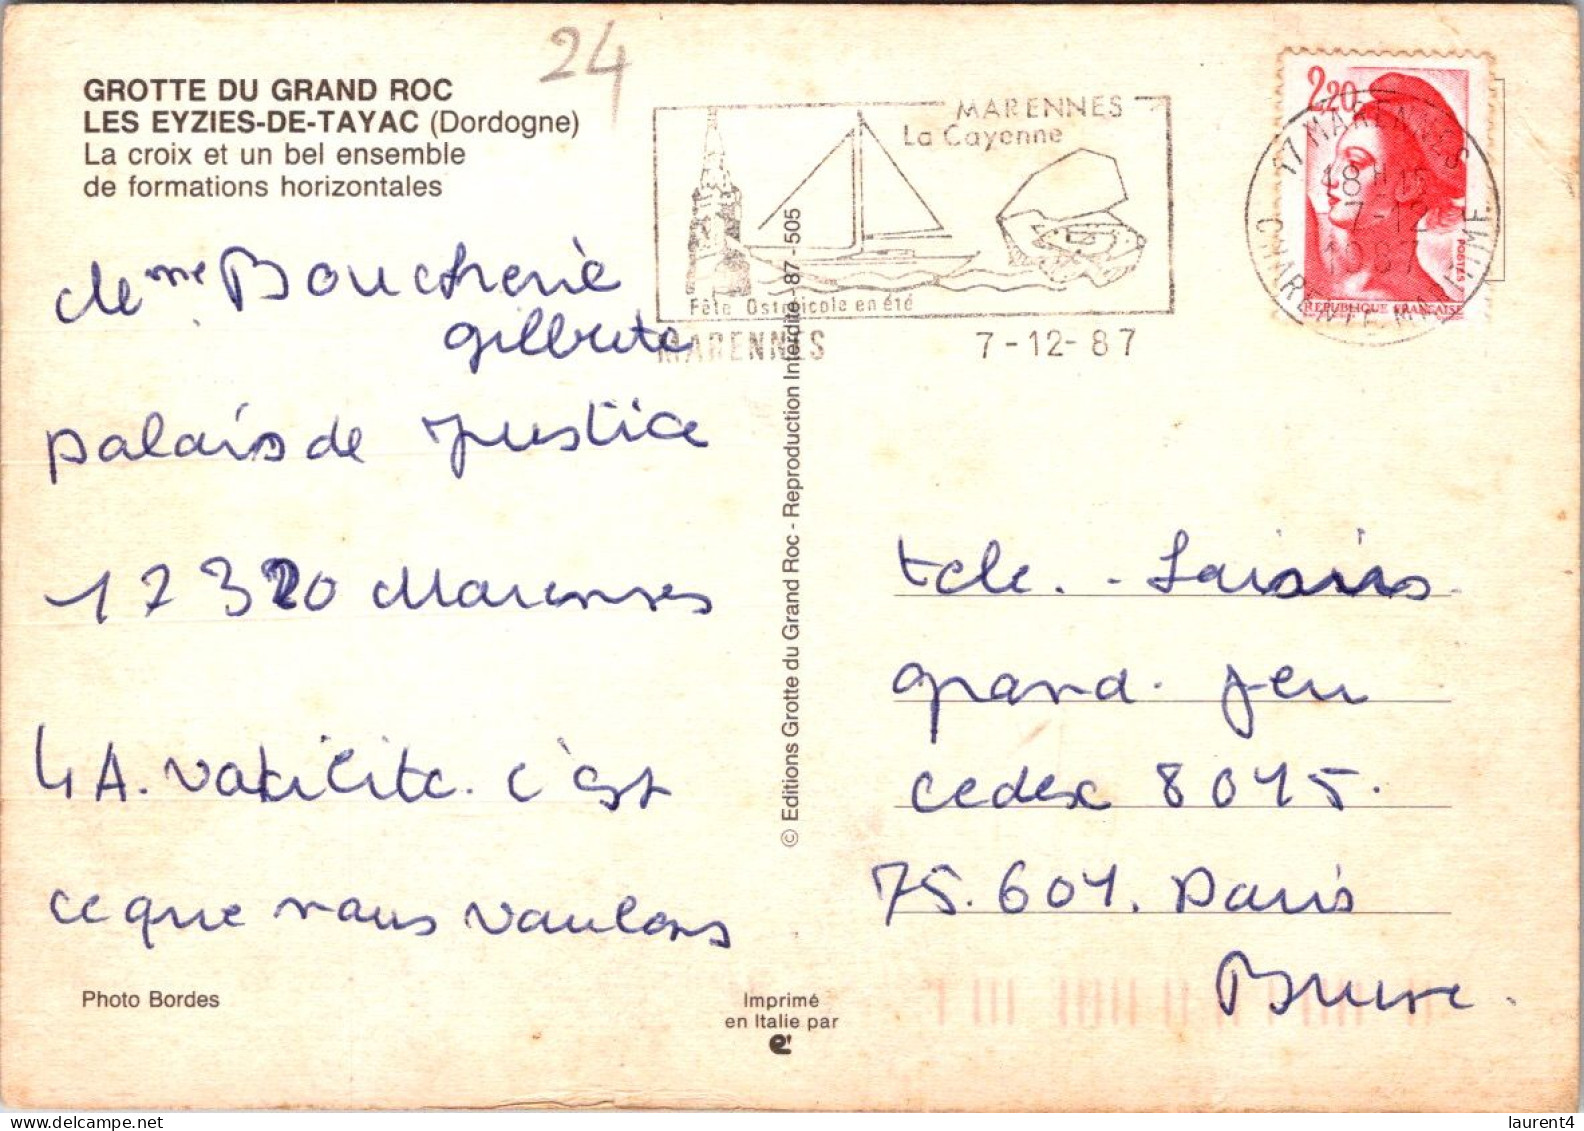 24
GROTTE DU GRAND ROC
LES EYZIES-DE-TAYAC (Dordogne)
La croix et un bel ensemble
de formations horizontales
MARENNES
La Cayenne
Fête Ostréicole en été
MARENNES 7-12-87
2,20
POSTES
REPUBLIQUE FRANÇAISE
17 MARENNES
18H15
7-12
1987
CHARENTE-MARITIME
Mme Boucherie
gilberte
palais de Justice
17320 Marennes
4 A. c'est
ce que nous voulons
© Editions Grotte du Grand Roc - Reproduction Interdite - 87 - 505
tele. - Loisirs
grand. Jeu
cedex 8015.
75.601. Paris
Brune.
Photo Bordes
Imprimé
en Italie par
www.delcampe.net
laurent4